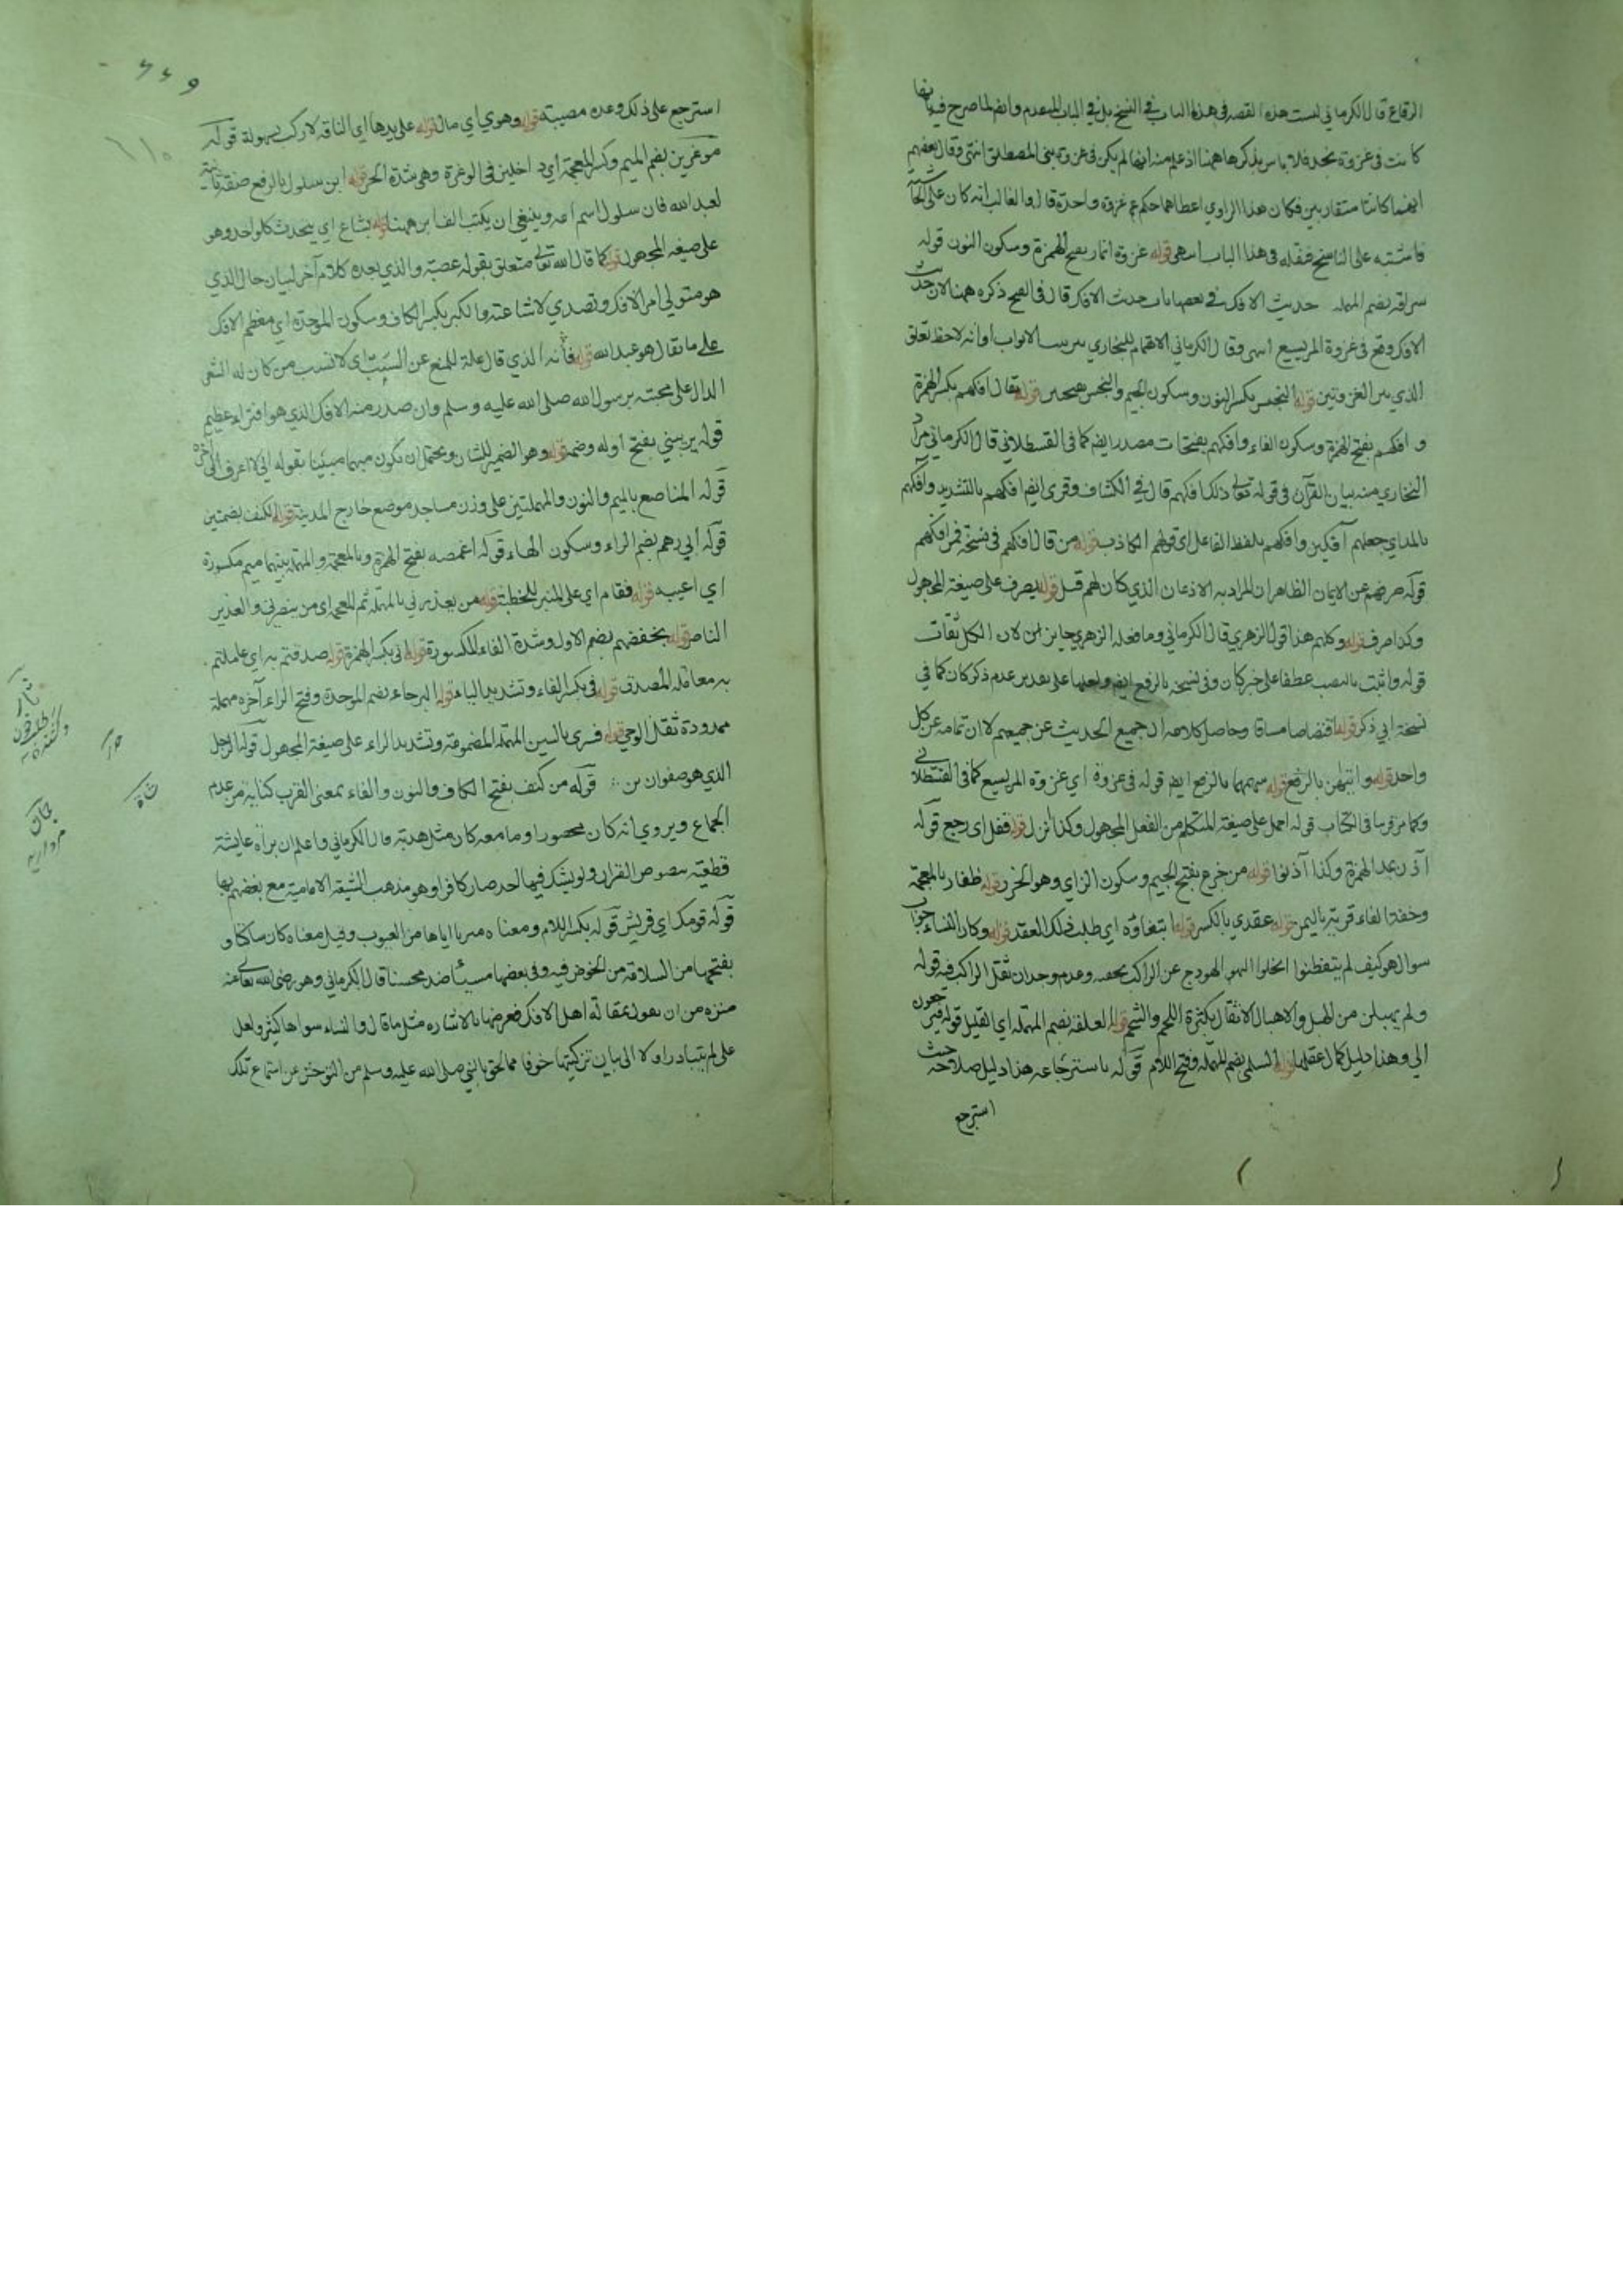 الرقاع قال الكرماني ليست هذه القصة في هذا الباب في النسخ بل في الباب المتقدم وايضا لما صرح فيها بانها
كانت في غزوة نجد فلا باس بذكرها ههنا اذ علم منه انها لم يكن في غزوة بني المصطلق انتهى وقال بعضهم
انهما كانتا متقاربين فكان هذا الراوي اعطاهما حكم غزوة واحدة قال والغالب انه كان على الحاشية
فاشتبه على الناسخ فنقله في هذا الباب انتهى قوله غزوة انمار بفتح الهمزة وسكون النون قوله
سراقة بضم المهملة حديث الافك في بعضها باب حديث الافك قال في الفتح ذكره ههنا لان حديث
الافك وقع في غزوة المريسيع انتهى وقال الكرماني الاهتمام للبخاري بترتيب الابواب او انه لاحظ تعلق
الذي بين الغزوتين قوله النجس بكسر النون وسكون الجيم والنجس بفتحتين قوله يقال افكهم بكسر الهمزة
و افكهم بفتح الهمزة وسكون الفاء وافكهم بفتحات مصدر ايضا كما في القسطلاني قال الكرماني مراد
البخاري منه بيان القرآن في قوله تعالى ذلك افكهم قال في الكشاف وقرئ ايضا افكهم بالتشديد وآفكهم
بالمد اي جعلهم آفكين وآفكهم بلفظ الفاعل اي قولهم الكاذب قوله من قال افكهم في نسخة فمن افكهم
قوله صرفهم عن الايمان الظاهر ان المراد به الاذعان الذي كان لهم قبل قوله يصرف على صيغة المجهول
وكذا صرف قوله وكلهم هذا قول الزهري قال الكرماني وما فعله الزهري جايز لان الكل ثقات
قوله واثبت بالنصب عطفا على خبر كان وفي نسخة بالرفع ايضا ولعلها على تقدير عدم ذكر كان كما في
نسخة ابي ذكر قوله اقتصاصا مساقا وحاصل كلامه ان جميع الحديث عن جميعهم لا ان تمامه عن كل
واحد قوله وايتهن بالرفع قوله سهمها بالرفع ايضا قوله في غزوة اي غزوة المريسيع كما في القسطلاني
وكما مر قوله احمل على صيغة المتكلم من الفعل المجهول وكذا انزل قوله قفل اي رجع قوله
آذن بمد الهمزة وكذا آذنوا قوله من جزع بفتح الجيم وسكون الزاي وهو الخرز قوله ظفار بالمعجمة
وخفة الفاء قرية باليمن قوله عقدي بالكسر قوله ابتغاؤه اي طلب ذلك العقد قوله وكان النساء جواب
سوال هو كيف لم يتفطنوا خلو الهودج عن الراكب بخفته وعدم وجدان ثقل الراكب فيه قوله
ولم يهبلن من الهبل والاهبال الاثقال بكثرة اللحم والشحم قوله العلقة بضم المهملة اي القليل قوله فيرجعون
الي وهذا دليل كمال عقلها قوله السلمي بضم المهملة وفتح اللام قوله باسترجاعه هذا دليل صلاحه حيث
استرجع
استرجع على ذلك وعده مصيبة قوله وهوى اي مال قوله على يدها اي الناقة لاركب بسهولة قوله
موغرين بضم الميم وكسر المعجمة اي داخلين في الوغرة وهي شدة الحر قوله ابن سلول بالرفع صفة ثانية
لعبد الله فان سلول اسم امه وينبغي ان يكتب الف ابن ههنا قوله يشاع اي يتحدث كلواحد وهو
على صيغة المجهول قوله كما قال الله تعالى متعلق بقوله عصبة والذي بعده كلام آخر لبيان حال الذي
هو متولي امر الافك وتصدي لاشاعته والكبر بكسر الكاف وسكون الموحدة اي معظم الافك
على ما يقال هو عبد الله قوله فأنه الذي قال علة للمنع عن السب اي لا تسب من كان له الشعر
الدال على محبته برسول الله صلى الله عليه وسلم وان صدر منه الافك الذي هو افتراء عظيم
قوله يريبني بفتح اوله وضمه قوله وهو الضمير للشان ويحتمل ان يكون مبهما مبينا بقوله اني لا اعرف الى آخره
قوله المناصع بالميم والنون والمهملتين على وزن مساجد موضع خارج المدينة قوله الكنف بضمتين
قوله أبي رهم بضم الراء وسكون الهاء قوله اغمصه بفتح الهمزة وبالمعجمة والمهملة بينهما ميم مكسورة
اي اعيبه قوله فقام اي على المنبر للخطبة قوله من يعذرني بالمهملة ثم المعجمة اي من ينصرني والعذير
الناصر قوله يخفضهم بضم الاول وشدة الفاء المكسورة قوله اني بكسر الهمزة قوله صدقتم به اي عاملتم
به معاملة المصدق قوله في بكسر الفاء وتشديد الياء قوله البرحاء بضم الموحدة وفتح الراء آخره مهملة
ممدودة ثقل الوحي قوله فسرى بالسين المهملة المضمومة وتشديد الراء على صيغة المجهول قوله الرجل
الذي هو صفوان بن قوله من كنف بفتح الكاف والنون والفاء بمعنى القرب كناية من عدم
الجماع ويروي انه كان حصورا وما معه كان مثل هدبة قال الكرماني واعلم ان براة عايشة
قطعية بنصوص القران ولو يشك فيها احد صار كافرا وهو مذهب الشيعة الامامية مع بغضهم بها
قوله قومك اي قريش قوله بكسر اللام ومعناه مبريا اياها من العيوب وقيل معناه كان ساكتا و
بفتحها من السلامة من الخوض فيه وفي بعضها مسيئا ضد محسنا قال الكرماني وهو رضي الله تعالى عنه
منزه من ان يقول بمقالة اهل الافك فعرضها بالاشارة مثل ما قال والنساء سواها كثير ولعل
على لم يتبادر اولا الى بيان تزكيتها خوفا مما لحق بالنبي صلى الله عليه وسلم من التوحش عن استماع تلك